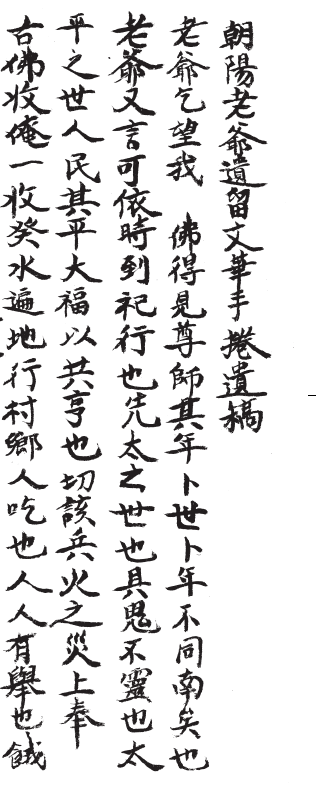 朝陽老爺遺留文華手捲遺稿
老爺乞望我 佛得見尊師其年卜世卜年不同南矣也
老爺又言可依時到祀行也先太之世也具鬼不靈也太
平之世人民其平大福以共亨也切該兵火之災上奉
古佛收俺一收癸水遍地行村鄉人吃也人人有舉也餓